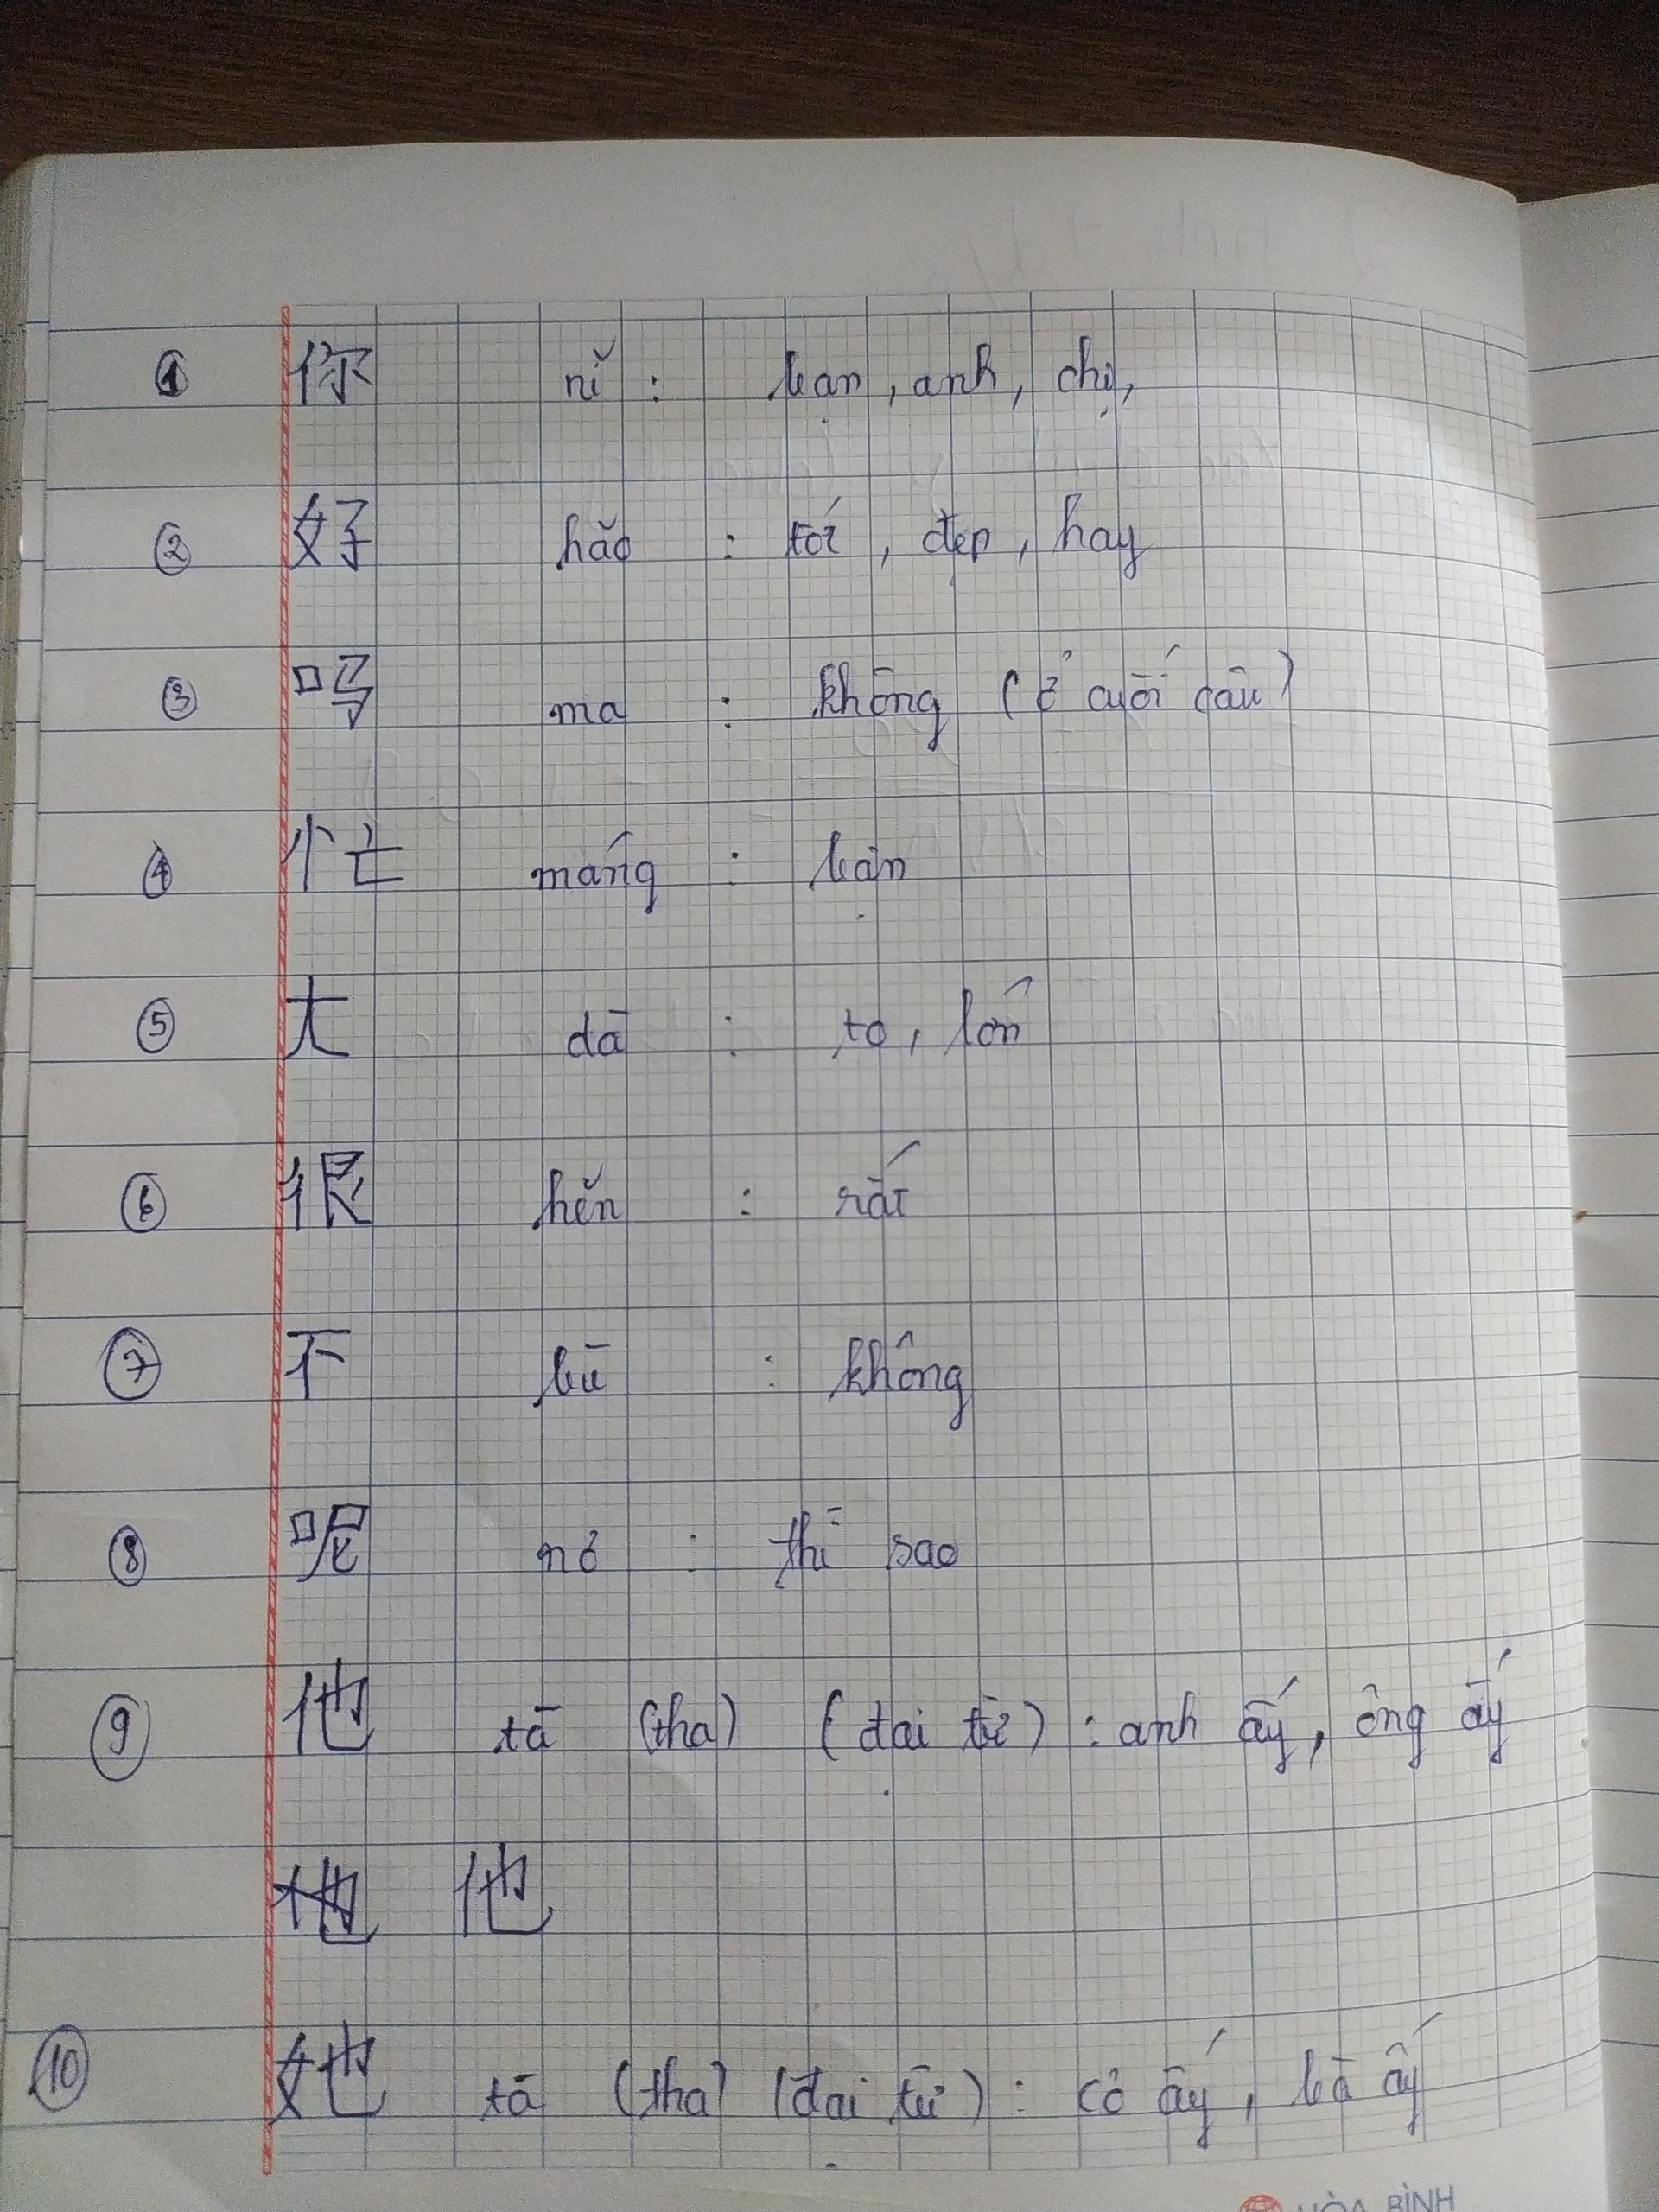 ① 你 nǐ : bạn, anh, chị,
② 好 hǎo : tốt, đẹp, hay
③ 吗 ma : không (ở cuối câu)
④ 忙 máng : bận
⑤ 大 dā : to, lớn
⑥ 很 hěn : rất
⑦ 不 bū : không
⑧ 呢 nơ : thì sao
⑨ 他 tā (tha) (đại từ) : anh ấy, ông ấy
他
⑩ 她 tā (tha) (đại từ) : cô ấy, bà ấy
HÒA BÌNH